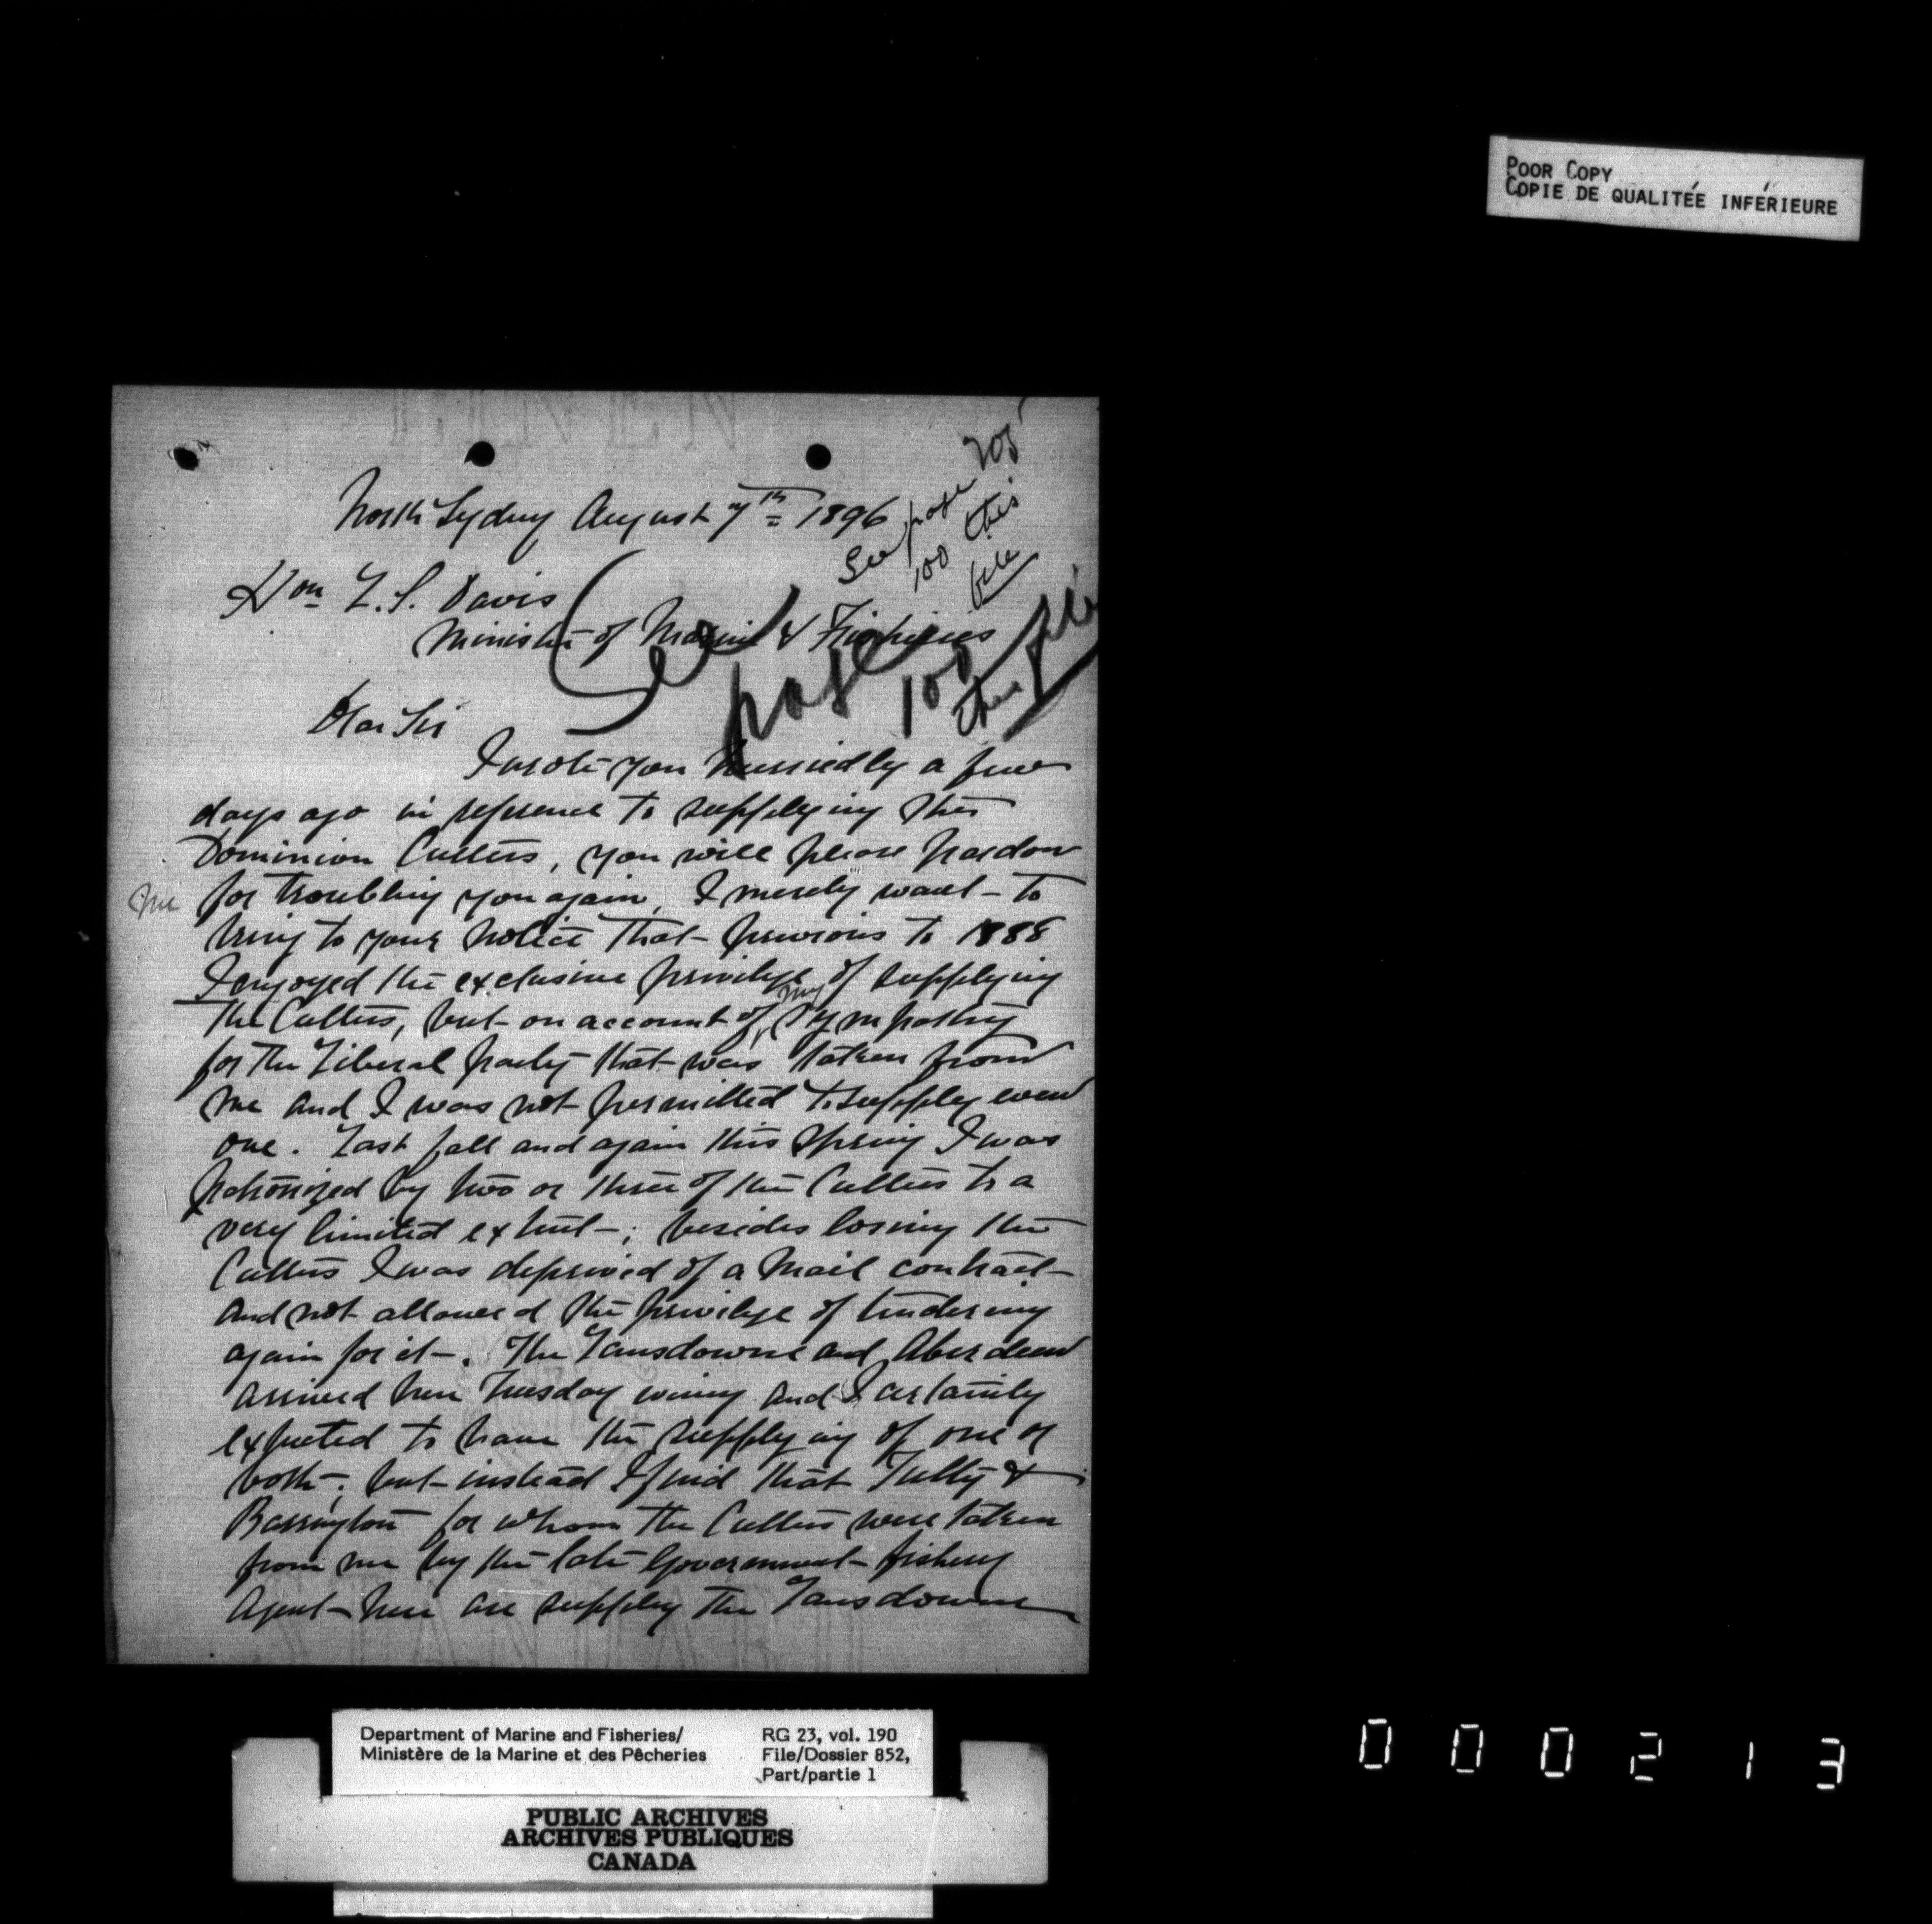 POOR COPY
COPIE DE QUALITÉE INFÉRIEURE
205
See page
100 this
file
North Sydney August 7th 1896
Hon L. S. Davis
Minister of Marine & Fisheries
See page 100 this file
Dear Sir
I wrote you hurriedly a few
days ago in reference to supplying the
Dominion Cutters, you will please pardon
me for troubling you again, I merely want to
bring to your notice that previous to 1888
I enjoyed the exclusive privilege of supplying
the Cutters, but on account of my sympathy
for the Liberal party that was taken from
me and I was not permitted to supply even
one. Last fall and again this Spring I was
patronized by two or three of the Cutters to a
very limited extent; besides losing the
Cutters I was deprived of a Mail contract
and not allowed the privilege of tendering
again for it. The Lansdowne and Aberdeen
arrived here Tuesday evening and I certainly
expected to have the supplying of one or
both; but instead I find that Tully &
Barrington for whom the Cutters were taken
from me by the late Government fishery
Agent here are supply the Lansdowne
Department of Marine and Fisheries/
Ministère de la Marine et des Pêcheries
RG 23, vol. 190
File/Dossier 852,
Part/partie 1
PUBLIC ARCHIVES
ARCHIVES PUBLIQUES
CANADA
000213